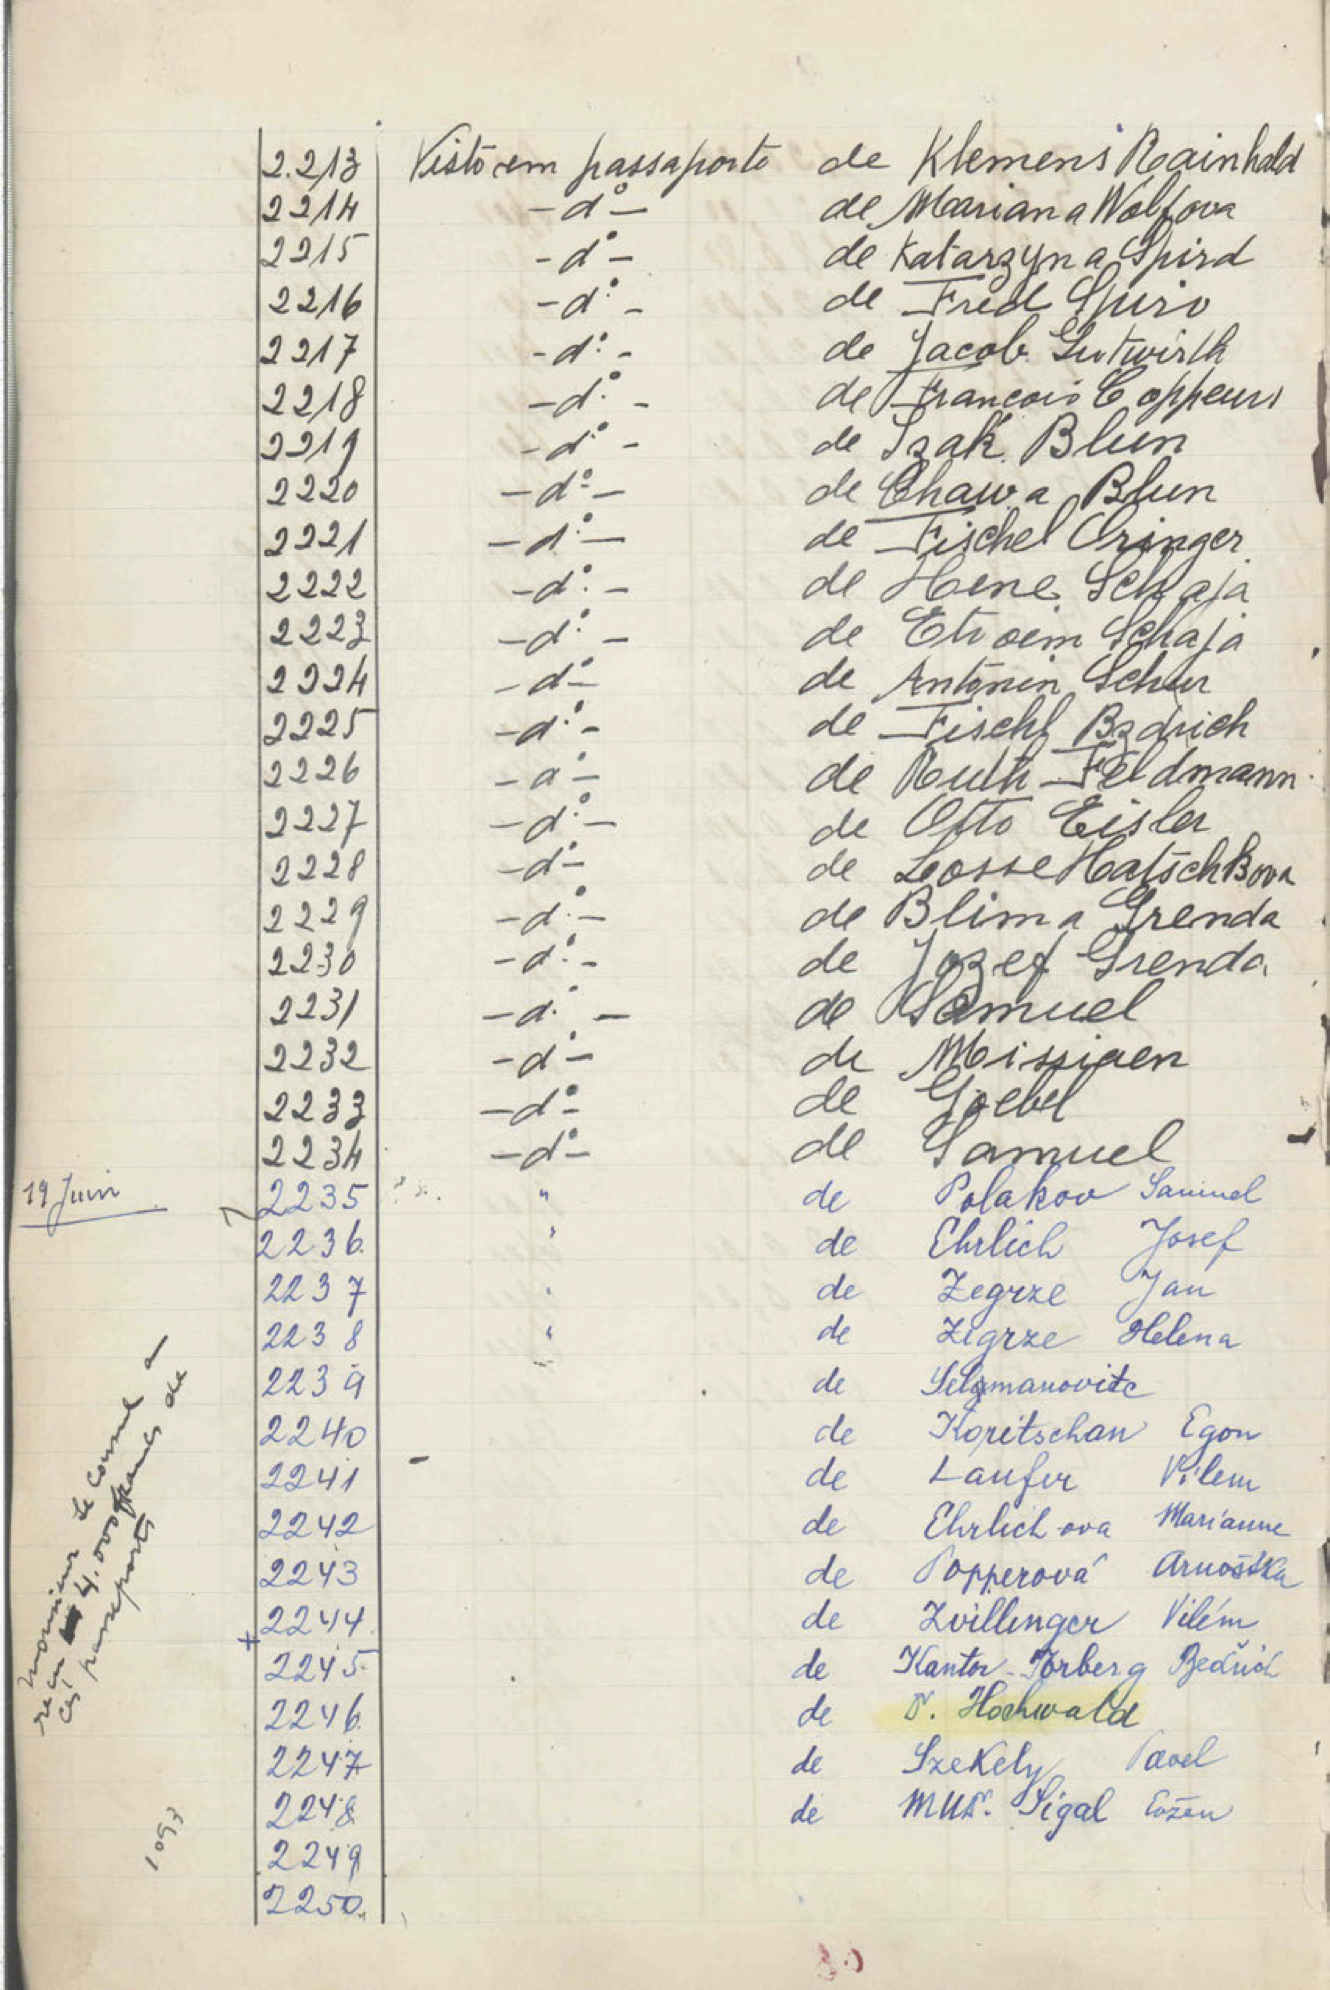 2.213 Visto em passaporte de Klemens Rainhald
2214 - dº - de Mariana Wolfova
2215 - dº - de Katarzyna Spird
2216 - dº - de Fred Spiro
2217 - dº - de Jacob Gutwirth
2218 - dº - de Francois Coppens
2219 - dº - de Izak Blun
2220 - dº - de Chawa Blun
2221 - dº - de Fischel Oringer
2222 - dº - de Hene Schaja
2223 - dº - de Etroem Schaja
2224 - dº - de Antonin Schur
2225 - dº - de Fischl Bzdrich
2226 - dº - de Ruth Feldmann
2227 - dº - de Otto Eisler
2228 - dº - de Losse Hatschkova
2229 - dº - de Blima Grenda
2230 - dº - de Jozef Grenda
2231 - dº - de Samuel
2232 - dº - de Missiaen
2233 - dº - de Goebel
2234 - dº - de Samuel
19 Juin 2235 " de Polakov Samuel
2236 " de Ehrlich Josef
2237 " de Zegrze Jan
2238 " de Zegrze Helena
2239 " de Selzmanovitc
2240 de Koritschan Egon
2241 de Laufer Vilem
2242 de Ehrlichova Marianne
2243 de Popperová Arnoštka
2244 de Zvillinger Vilém
2245 de Kantor-Torberg Bedřich
2246 de Dr. Hochwald
2247 de Szekely Pavel
2248 de MUDr. Sigal Evžen
2249
2250
monsieur le consul a
reçu 4.000 francs de
ces passeports
1093